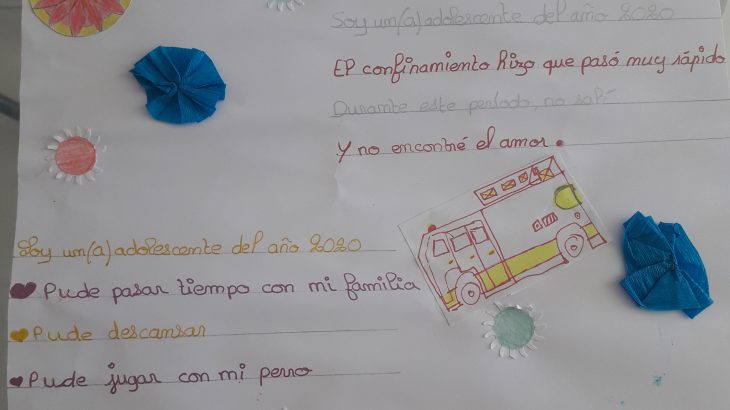 Soy un(a) adolescente del año 2020
El confinamiento hizo que pasó muy rápido
Durante este período, no salí
Y no encontré el amor.
Soy un(a) adolescente del año 2020
Pude pasar tiempo con mi familia
Pude descansar
Pude jugar con mi perro